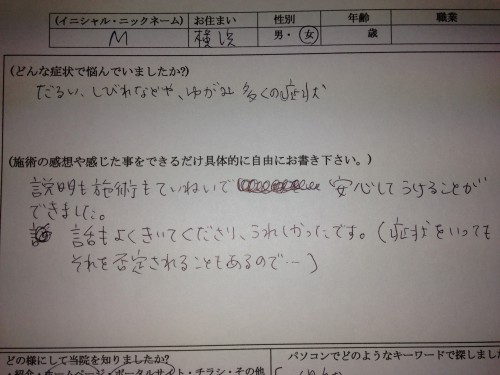 (イニシャル・ニックネーム) お住まい 性別 年齢 職業
M 横浜 男・女 歳
(どんな症状で悩んでいましたか?)
だるい、しびれなどや、ゆがみ 多くの症状
(施術の感想や感じた事をできるだけ具体的に自由にお書き下さい。)
説明も施術もていねいで 安心してうけることが
できました。
話もよくきいてくださり、うれしかったです。(症状をいっても
それを否定されることもあるので…)
どの様にして当院を知りましたか? パソコンでどのようなキーワードで探しました
・紹介・ホームページ・ポータルサイト・チラシ・その他